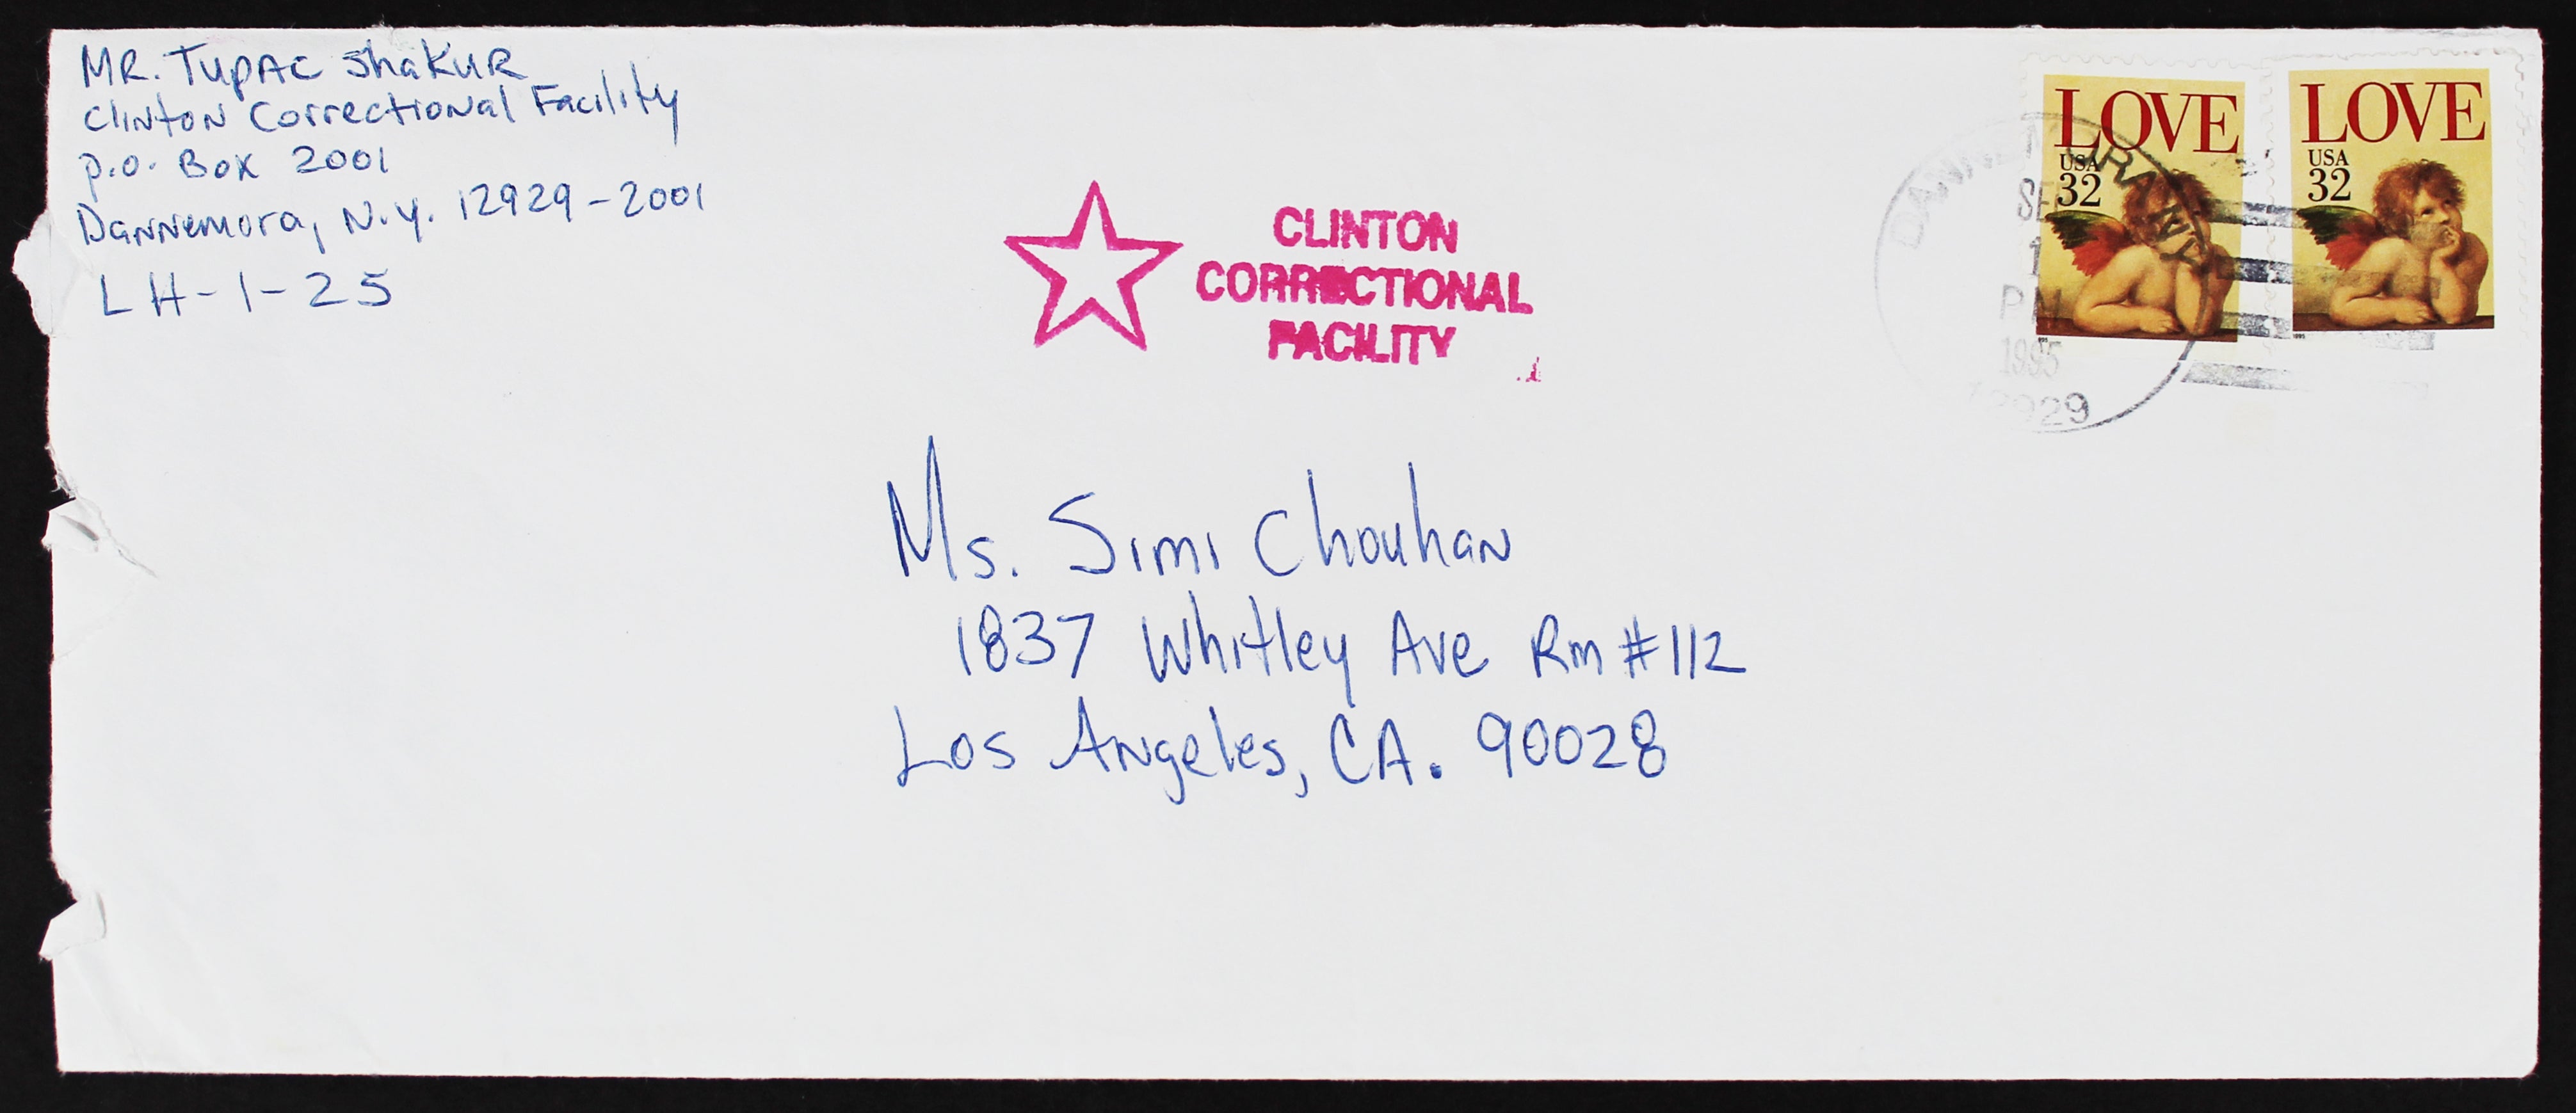 MR. Tupac Shakur
Clinton Correctional Facility
P.O. Box 2001
Dannemora, N.Y. 12929-2001
LH-1-25
CLINTON
CORRECTIONAL
FACILITY
LOVE
USA
32
LOVE
USA
32
DANNEMORA NY
SE
1
PM
1995
12929
Ms. Simi Chouhan
1837 Whitley Ave Rm #112
Los Angeles, CA. 90028